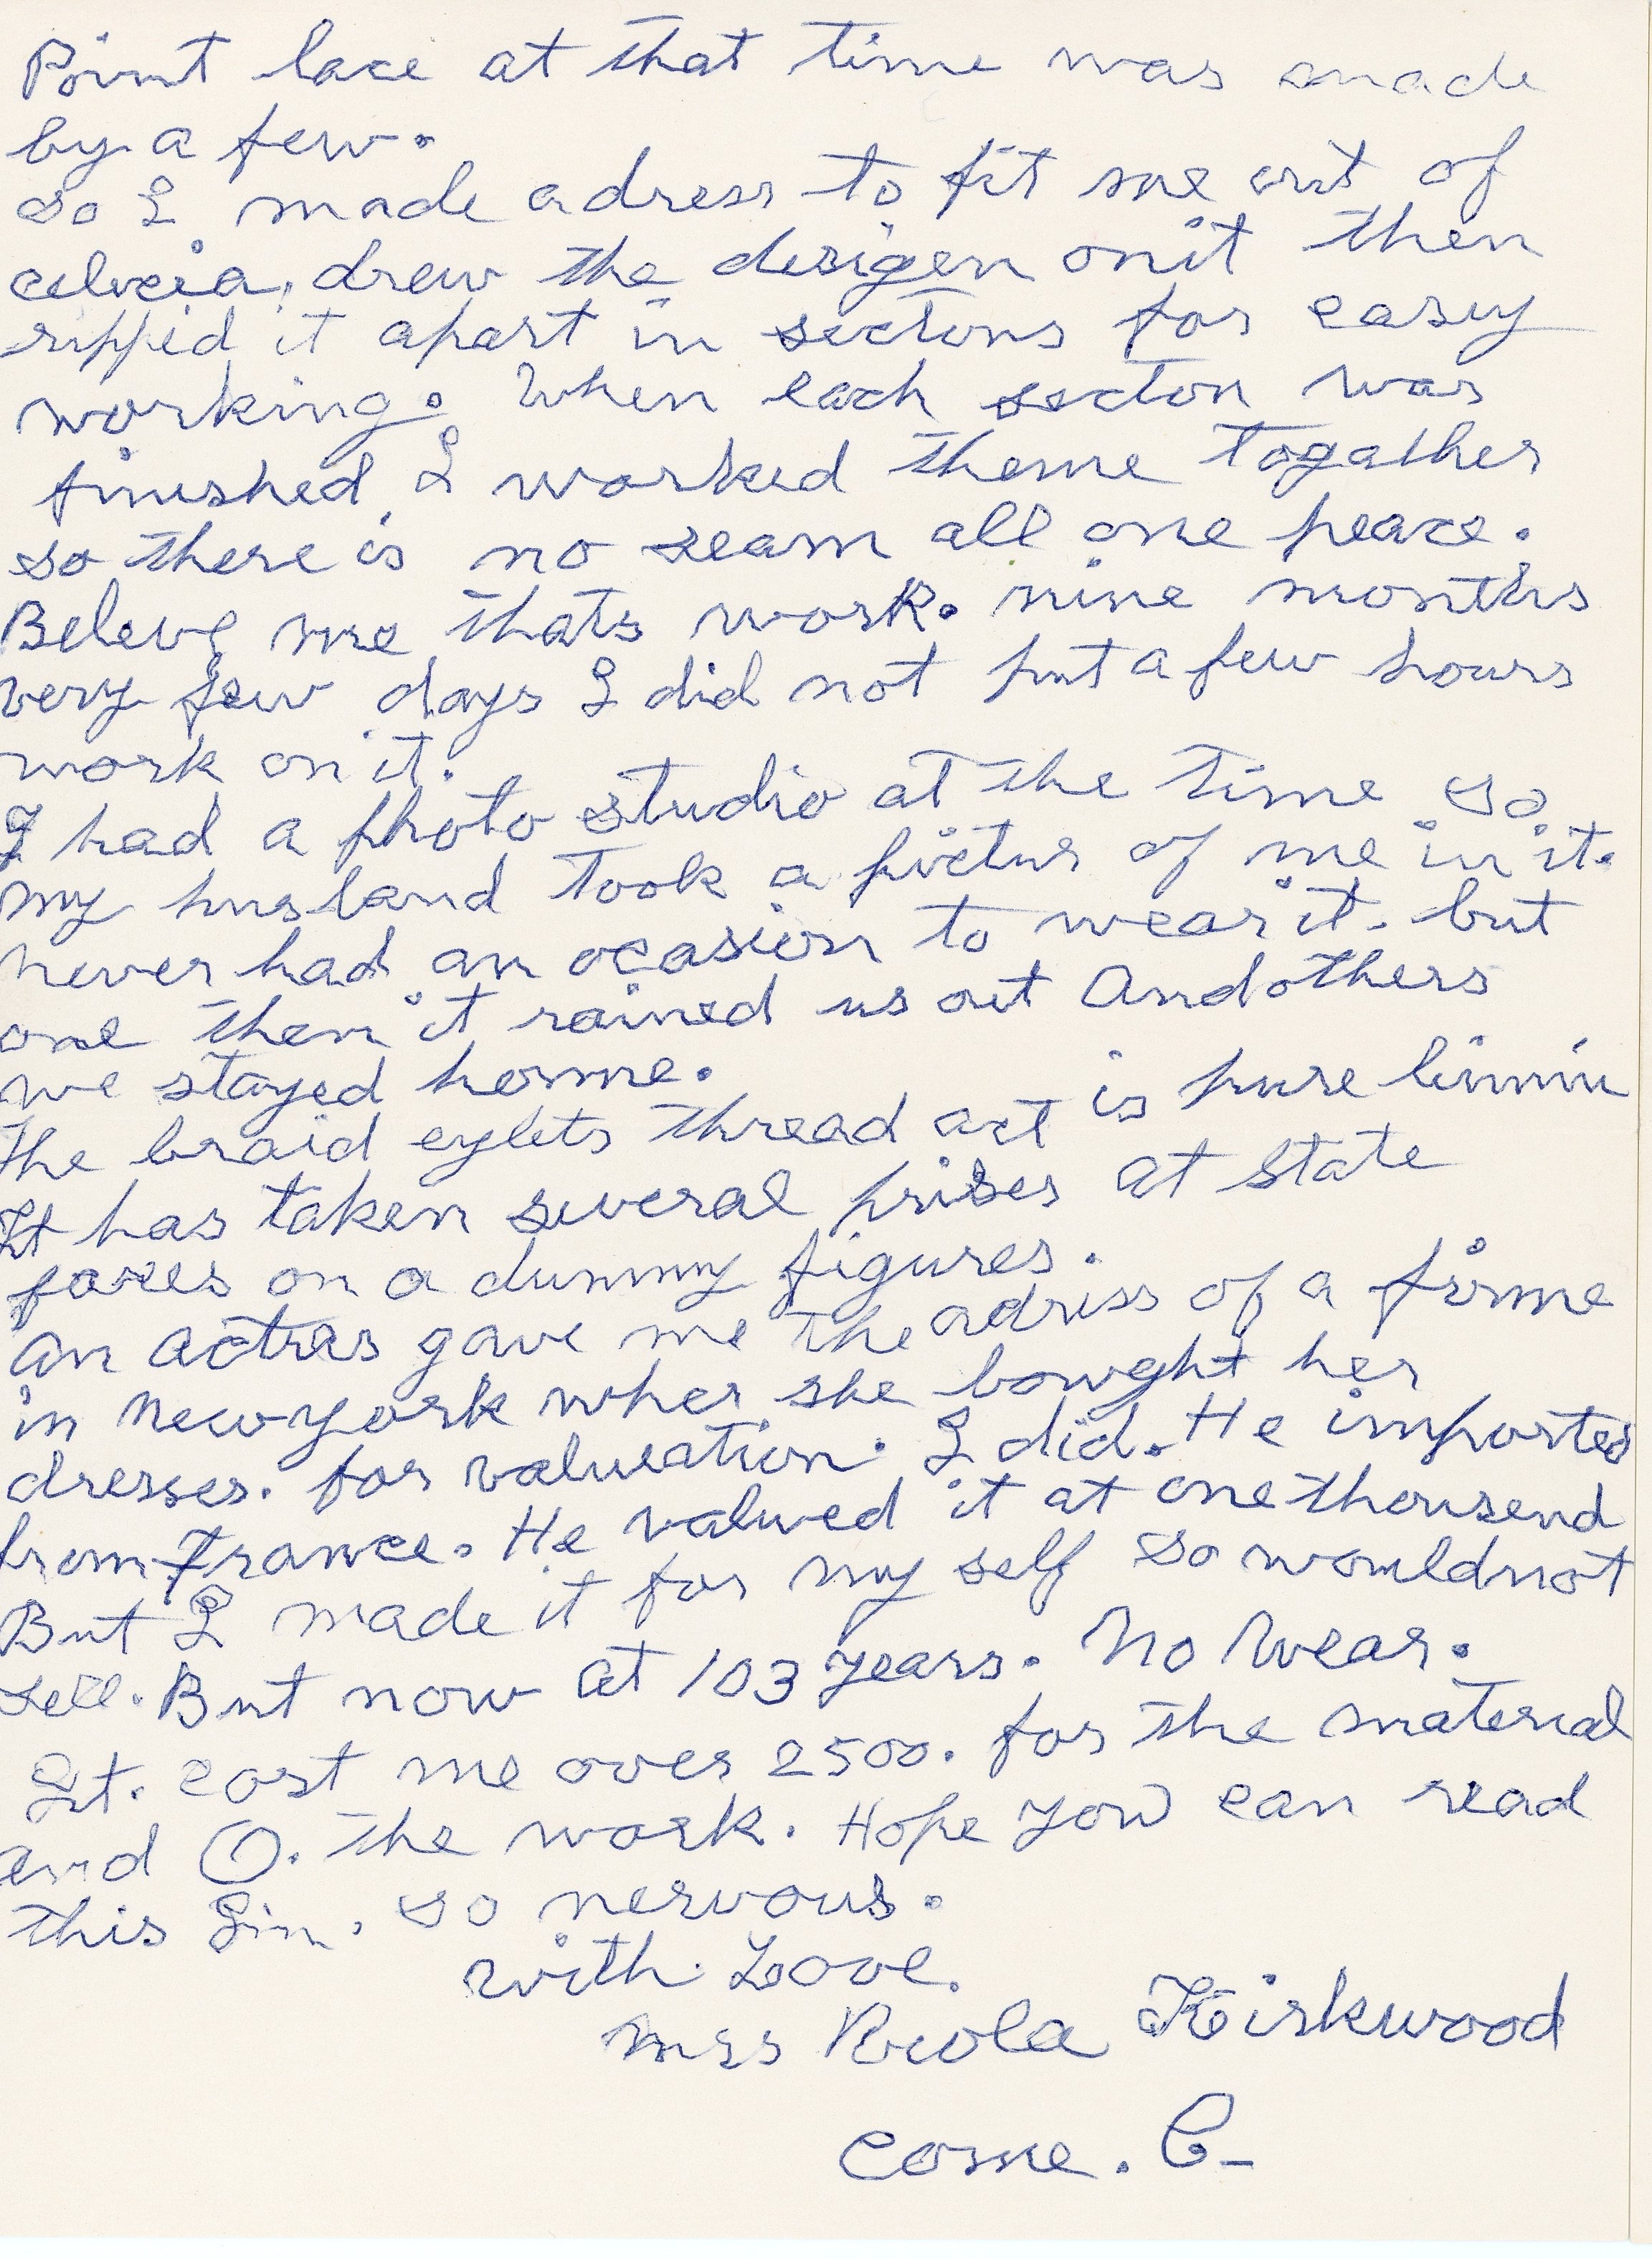 Point lace at that time was made
by a few.
So I made a dress to fit me out of
celiecia, drew the desigen on it then
ripped it apart in sectons for easy
working. When each secton was
finished, I worked theme togather
so there is no seam all one peace.
Beleve me thats work. nine months
very few days I did not put a few hours
work on it.
I had a photo studio at the time so
my husband took a pictur of me in it.
never had an ocasion to wear it. but
one then it rained us out And others
we stayed home.
The braid eylets thread act is pure linnin
It has taken several prises at state
fares on a dummy figures.
An actras gave me the adriss of a firme
in New york wher she bought her
dresses. for valueation. I did. He imported
from France. He valued it at one thousend
But I made it for my self so would not
sell. But now at 103 years. No wear.
It. cost me over 2500. for the material
and O. the work. Hope you can read
this Iin. so nervous.
with Love.
Mrs Kirkwood
come. C-